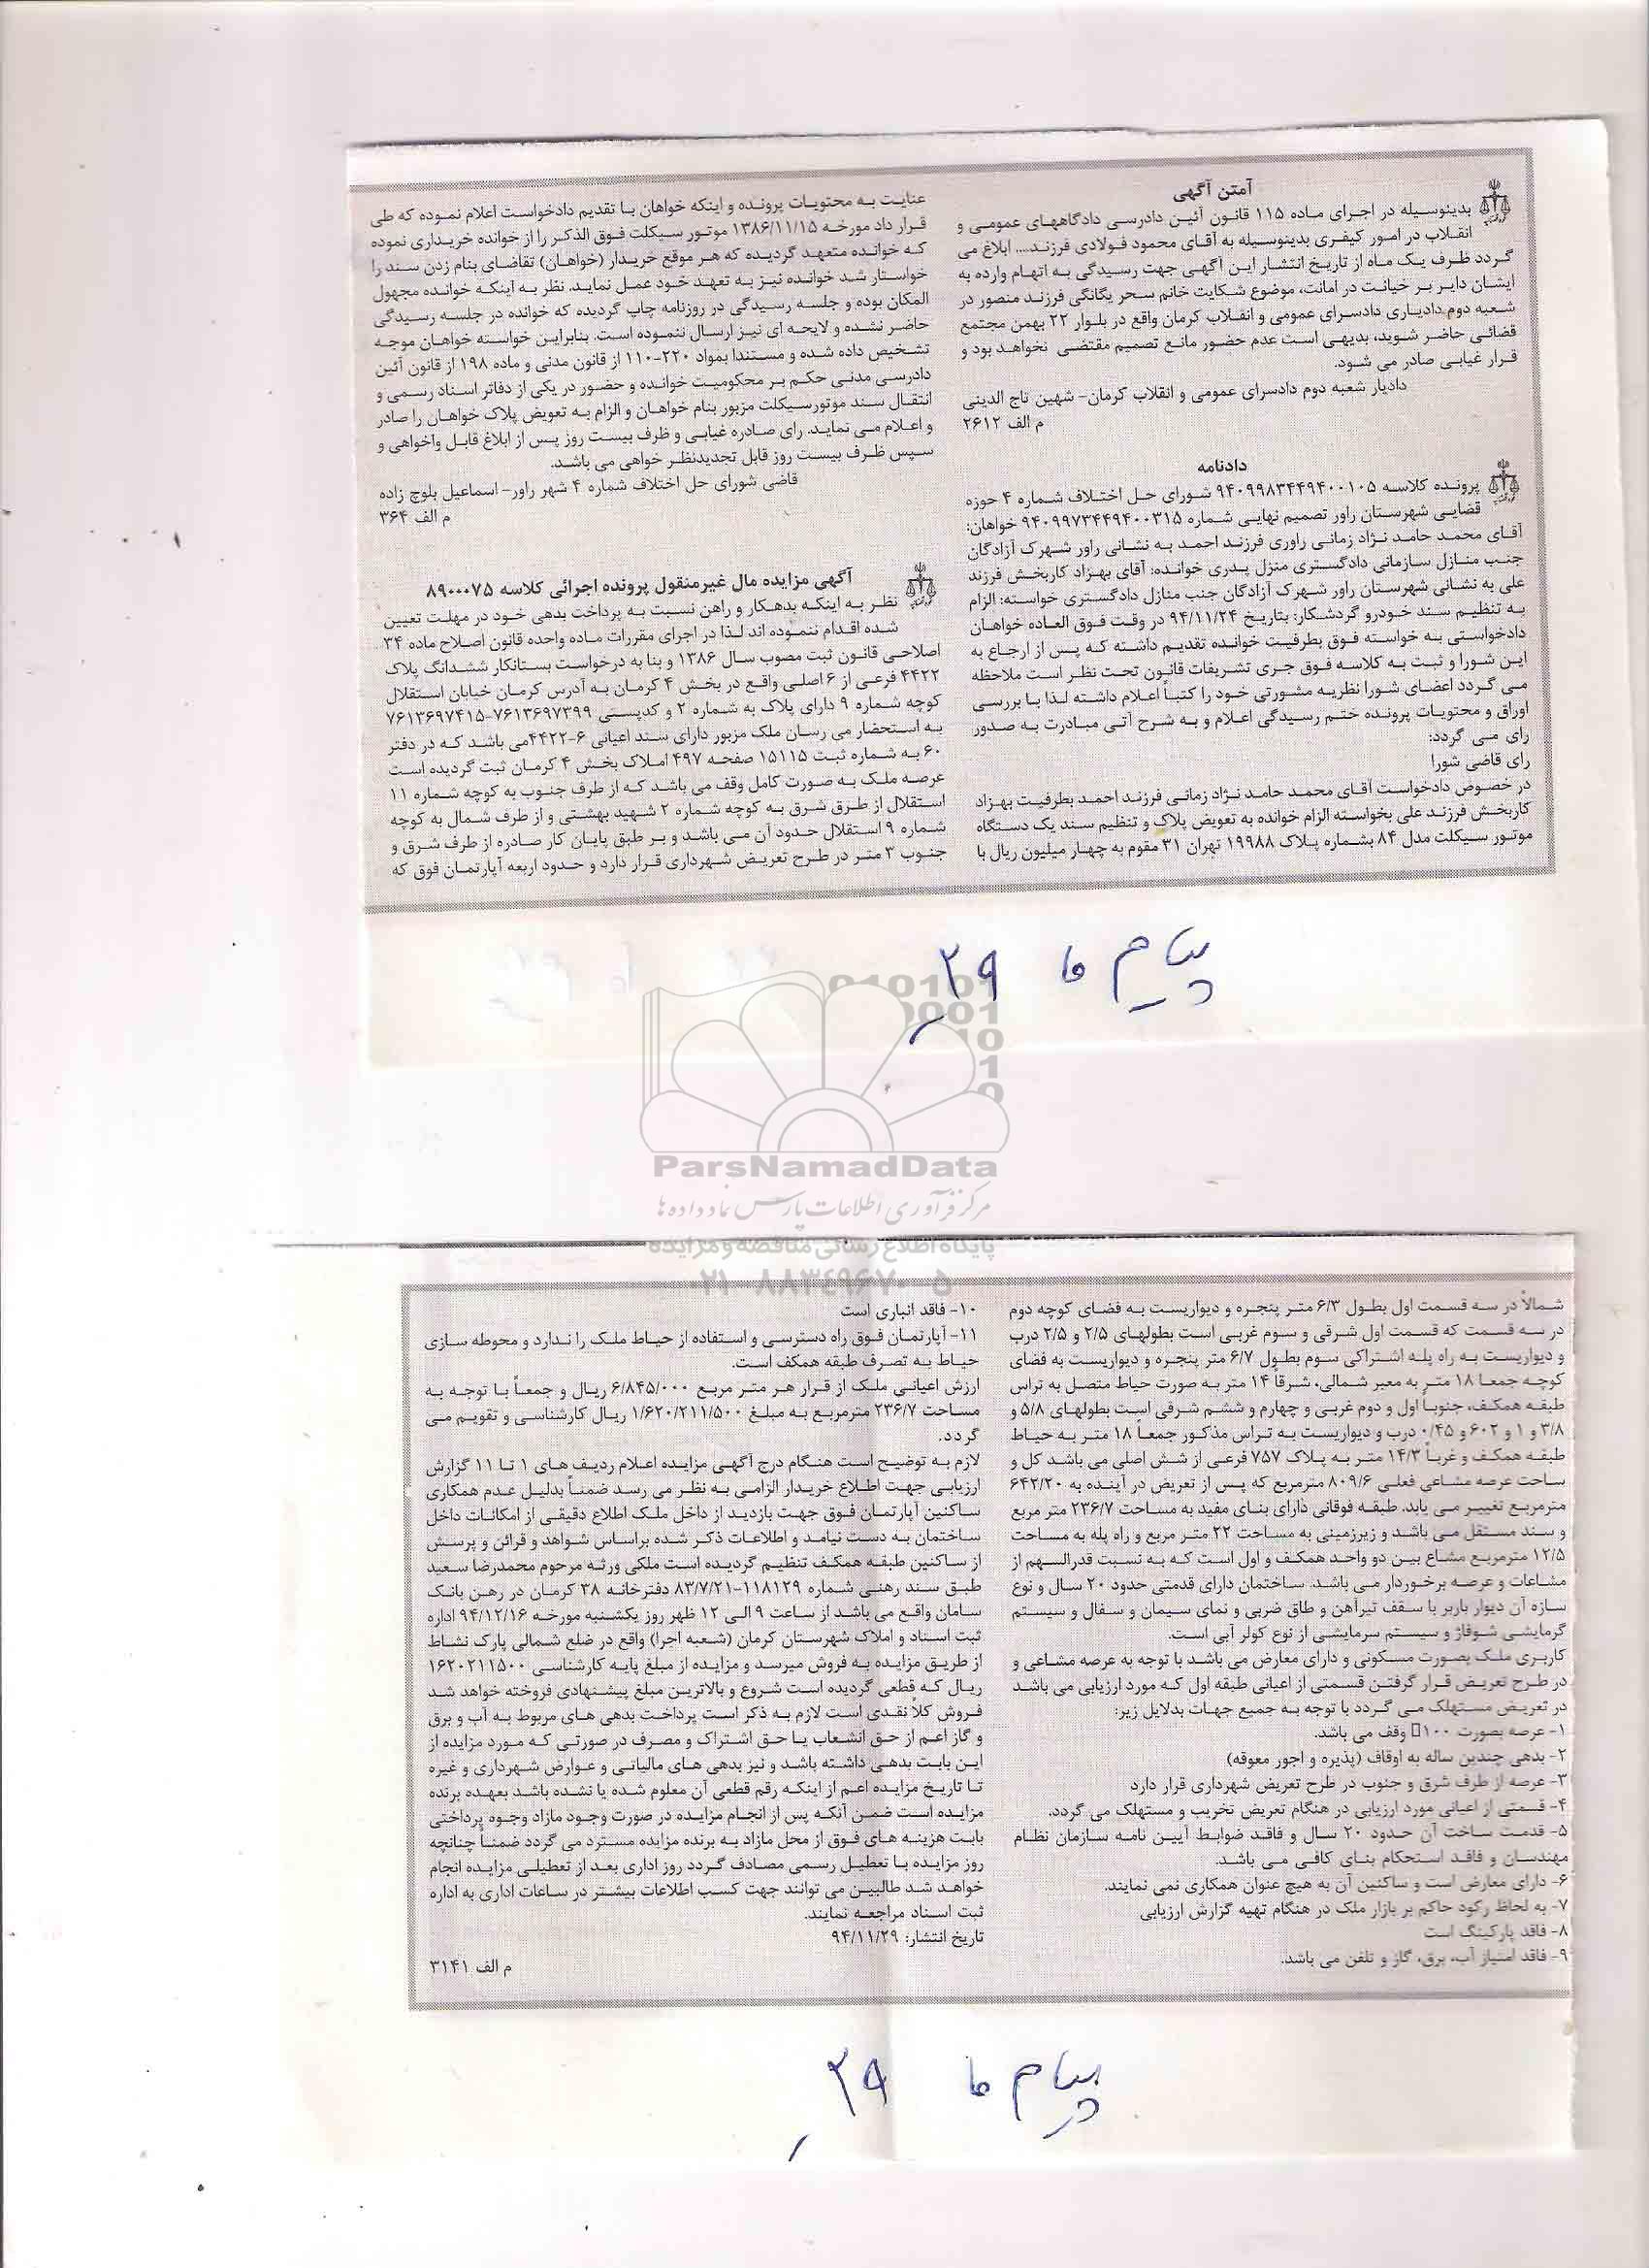 آمتن آگهی
بدینوسیله در اجرای ماده ۱۱۵ قانون آئین دادرسی دادگاههای عمومی و
انقلاب در امور کیفری بدینوسیله به آقای محمود فولادی فرزند.... ابلاغ می
گردد ظرف یک ماه از تاریخ انتشار این آگهی جهت رسیدگی به اتهام وارده به
ایشان دایر بر خیانت در امانت، موضوع شکایت خانم سحر یگانگی فرزند منصور در
شعبه دوم دادیاری دادسرای عمومی و انقلاب کرمان واقع در بلوار ۲۲ بهمن مجتمع
قضائی حاضر شوید، بدیهی است عدم حضور مانع تصمیم مقتضی نخواهد بود و
قرار غیابی صادر می شود.
دادیار شعبه دوم دادسرای عمومی و انقلاب کرمان- شهین تاج الدینی
م الف ۲۶۱۲
دادنامه
پرونده کلاسه ۹۴۰۹۹۸۳۴۴۹۴۰۰۱۰۵ شورای حل اختلاف شماره ۴ حوزه
قضایی شهرستان راور تصمیم نهایی شماره ۹۴۰۹۹۷۳۴۴۹۴۰۰۳۱۵ خواهان:
آقای محمد حامد نژاد زمانی راوری فرزند احمد به نشانی راور شهرک آزادگان
جنب منازل سازمانی دادگستری منزل پدری خوانده: آقای بهزاد کاربخش فرزند
علی به نشانی شهرستان راور شهرک آزادگان جنب منازل دادگستری خواسته: الزام
به تنظیم سند خودرو گردشکار: بتاریخ ۹۴/۱۱/۲۴ در وقت فوق العاده خواهان
دادخواستی به خواسته فوق بطرفیت خوانده تقدیم داشته که پس از ارجاع به
این شورا و ثبت به کلاسه فوق جری تشریفات قانون تحت نظر است ملاحظه
می گردد اعضای شورا نظریه مشورتی خود را کتباً اعلام داشته لذا با بررسی
اوراق و محتویات پرونده ختم رسیدگی اعلام و به شرح آتی مبادرت به صدور
رای می گردد:
رای قاضی شورا
در خصوص دادخواست آقای محمد حامد نژاد زمانی فرزند احمد بطرفیت بهزاد
کاربخش فرزند علی بخواسته الزام خوانده به تعویض پلاک و تنظیم سند یک دستگاه
موتور سیکلت مدل ۸۴ بشماره پلاک ۱۹۹۸۸ تهران ۳۱ مقوم به چهار میلیون ریال با
عنایت به محتویات پرونده و اینکه خواهان با تقدیم دادخواست اعلام نموده که طی
قرار داد مورخه ۱۳۸۶/۱۱/۱۵ موتور سیکلت فوق الذکر را از خوانده خریداری نموده
که خوانده متعهد گردیده که هر موقع خریدار (خواهان) تقاضای بنام زدن سند را
خواستار شد خوانده نیز به تعهد خود عمل نماید. نظر به اینکه خوانده مجهول
المکان بوده و جلسه رسیدگی در روزنامه چاپ گردیده که خوانده در جلسه رسیدگی
حاضر نشده و لایحه ای نیز ارسال ننموده است. بنابراین خواسته خواهان موجه
تشخیص داده شده و مستندا بمواد ۲۲۰-۱۱۰ از قانون مدنی و ماده ۱۹۸ از قانون آئین
دادرسی مدنی حکم بر محکومیت خوانده و حضور در یکی از دفاتر اسناد رسمی و
انتقال سند موتورسیکلت مزبور بنام خواهان و الزام به تعویض پلاک خواهان را صادر
و اعلام می نماید. رای صادره غیابی و ظرف بیست روز پس از ابلاغ قابل واخواهی و
سپس ظرف بیست روز قابل تجدیدنظر خواهی می باشد.
قاضی شورای حل اختلاف شماره ۴ شهر راور- اسماعیل بلوچ زاده
م الف ۳۶۴
آگهی مزایده مال غیرمنقول پرونده اجرائی کلاسه ۸۹۰۰۰۷۵
نظر به اینکه بدهکار و راهن نسبت به پرداخت بدهی خود در مهلت تعیین
شده اقدام ننموده اند لذا در اجرای مقررات ماده واحده قانون اصلاح ماده ۳۴
اصلاحی قانون ثبت مصوب سال ۱۳۸۶ و بنا به درخواست بستانکار ششدانگ پلاک
۴۴۲۲ فرعی از ۶ اصلی واقع در بخش ۴ کرمان به آدرس کرمان خیابان استقلال
کوچه شماره ۹ دارای پلاک به شماره ۲ و کدپستی ۷۶۱۳۶۹۷۳۹۹-۷۶۱۳۶۹۷۴۱۵
به استحضار می رسان ملک مزبور دارای سند اعیانی ۶-۴۴۲۲می باشد که در دفتر
۶۰ به شماره ثبت ۱۵۱۱۵ صفحه ۴۹۷ املاک بخش ۴ کرمان ثبت گردیده است
عرصه ملک به صورت کامل وقف می باشد که از طرف جنوب به کوچه شماره ۱۱
استقلال از طرق شرق به کوچه شماره ۲ شهید بهشتی و از طرف شمال به کوچه
شماره ۹ استقلال حدود آن می باشد و بر طبق پایان کار صادره از طرف شرق و
جنوب ۳ متر در طرح تعریض شهرداری قرار دارد و حدود اربعه آپارتمان فوق که
پیام ما ۲۹
ParsNamadData
مرکز فرآوری اطلاعات پارس نماد داده ها
پایگاه اطلاع رسانی مناقصه و مزایده
۰۲۱-۸۸۳۴۹۶۷۰-۵
شمالاً در سه قسمت اول بطول ۶/۳ متر پنجره و دیواریست به فضای کوچه دوم
در سه قسمت که قسمت اول شرقی و سوم غربی است بطولهای ۲/۵ و ۲/۵ درب
و دیواریست به راه پله اشتراکی سوم بطول ۶/۷ متر پنجره و دیواریست به فضای
کوچه جمعا ۱۸ متر به معبر شمالی، شرقاً ۱۴ متر به صورت حیاط متصل به تراس
طبقه همکف، جنوباً اول و دوم غربی و چهارم و ششم شرقی است بطولهای ۵/۸ و
۳/۸ و ۱ و ۲ و ۶۰ و ۰/۴۵ درب و دیواریست به تراس مذکور جمعاً ۱۸ متر به حیاط
طبقه همکف و غرباً ۱۴/۳ متر به پلاک ۷۵۷ فرعی از شش اصلی می باشد کل و
ساحت عرصه مشاعی فعلی ۸۰۹/۶ مترمربع که پس از تعریض در آینده به ۶۴۳/۲۰
مترمربع تغییر می یابد. طبقه فوقانی دارای بنای مفید به مساحت ۲۳۶/۷ متر مربع
و سند مستقل می باشد و زیرزمینی به مساحت ۲۲ متر مربع و راه پله به مساحت
۱۲/۵ مترمربع مشاع بین دو واحد همکف و اول است که به نسبت قدرالسهم از
مشاعات و عرصه برخوردار می باشد. ساختمان دارای قدمتی حدود ۲۰ سال و نوع
سازه آن دیوار باربر با سقف تیرآهن و طاق ضربی و نمای سیمان و سفال و سیستم
گرمایشی شوفاژ و سیستم سرمایشی از نوع کولر آبی است.
کاربری ملک بصورت مسکونی و دارای معارض می باشد با توجه به عرصه مشاعی و
در طرح تعریض قرار گرفتن قسمتی از اعیانی طبقه اول که مورد ارزیابی می باشد
در تعریض مستهلک می گردد با توجه به جمیع جهات بدلایل زیر:
۱- عرصه بصورت ۱۰۰□ وقف می باشد.
۲- بدهی چندین ساله به اوقاف (پذیره و اجور معوقه)
۳- عرصه از طرف شرق و جنوب در طرح تعریض شهرداری قرار دارد
۴- قسمتی از اعیانی مورد ارزیابی در هنگام تعریض تخریب و مستهلک می گردد.
۵- قدمت ساخت آن حدود ۲۰ سال و فاقد ضوابط آیین نامه سازمان نظام
مهندسان و فاقد استحکام بنای کافی می باشد.
۶- دارای معارض است و ساکنین آن به هیچ عنوان همکاری نمی نمایند.
۷- به لحاظ رکود حاکم بر بازار ملک در هنگام تهیه گزارش ارزیابی
۸- فاقد پارکینگ است
۹- فاقد امتیاز آب، برق، گاز و تلفن می باشد.
۱۰- فاقد انباری است
۱۱- آپارتمان فوق راه دسترسی و استفاده از حیاط ملک را ندارد و محوطه سازی
حیاط به تصرف طبقه همکف است.
ارزش اعیانی ملک از قرار هر متر مربع ۶/۸۴۵/۰۰۰ ریال و جمعاً با توجه به
مساحت ۲۳۶/۷ مترمربع به مبلغ ۱/۶۲۰/۲۱۱/۵۰۰ ریال کارشناسی و تقویم می
گردد.
لازم به توضیح است هنگام درج آگهی مزایده اعلام ردیف های ۱ تا ۱۱ گزارش
ارزیابی جهت اطلاع خریدار الزامی به نظر می رسد ضمناً بدلیل عدم همکاری
ساکنین آپارتمان فوق جهت بازدید از داخل ملک اطلاع دقیقی از امکانات داخل
ساختمان به دست نیامد و اطلاعات ذکر شده براساس شواهد و قرائن و پرسش
از ساکنین طبقه همکف تنظیم گردیده است ملکی ورثه مرحوم محمدرضا سعید
طبق سند رهنی شماره ۱۱۸۱۲۹-۸۳/۷/۲۱ دفترخانه ۳۸ کرمان در رهن بانک
سامان واقع می باشد از ساعت ۹ الی ۱۲ ظهر روز یکشنبه مورخه ۹۴/۱۲/۱۶ اداره
ثبت اسناد و املاک شهرستان کرمان (شعبه اجرا) واقع در ضلع شمالی پارک نشاط
از طریق مزایده به فروش میرسد و مزایده از مبلغ پایه کارشناسی ۱۶۲۰۲۱۱۵۰۰
ریال که قطعی گردیده است شروع و بالاترین مبلغ پیشنهادی فروخته خواهد شد
فروش کلاً نقدی است لازم به ذکر است پرداخت بدهی های مربوط به آب و برق
و گاز اعم از حق انشعاب یا حق اشتراک و مصرف در صورتی که مورد مزایده از
این بابت بدهی داشته باشد و نیز بدهی های مالیاتی و عوارض شهرداری و غیره
تا تاریخ مزایده اعم از اینکه رقم قطعی آن معلوم شده یا نشده باشد بعهده برنده
مزایده است ضمن آنکه پس از انجام مزایده در صورت وجود مازاد وجوه پرداختی
بابت هزینه های فوق از محل مازاد به برنده مزایده مسترد می گردد ضمناً چنانچه
روز مزایده با تعطیل رسمی مصادف گردد روز اداری بعد از تعطیلی مزایده انجام
خواهد شد طالبین می توانند جهت کسب اطلاعات بیشتر در ساعات اداری به اداره
ثبت اسناد مراجعه نمایند.
تاریخ انتشار: ۹۴/۱۱/۲۹
م الف ۳۱۴۱
پیام ما ۲۹